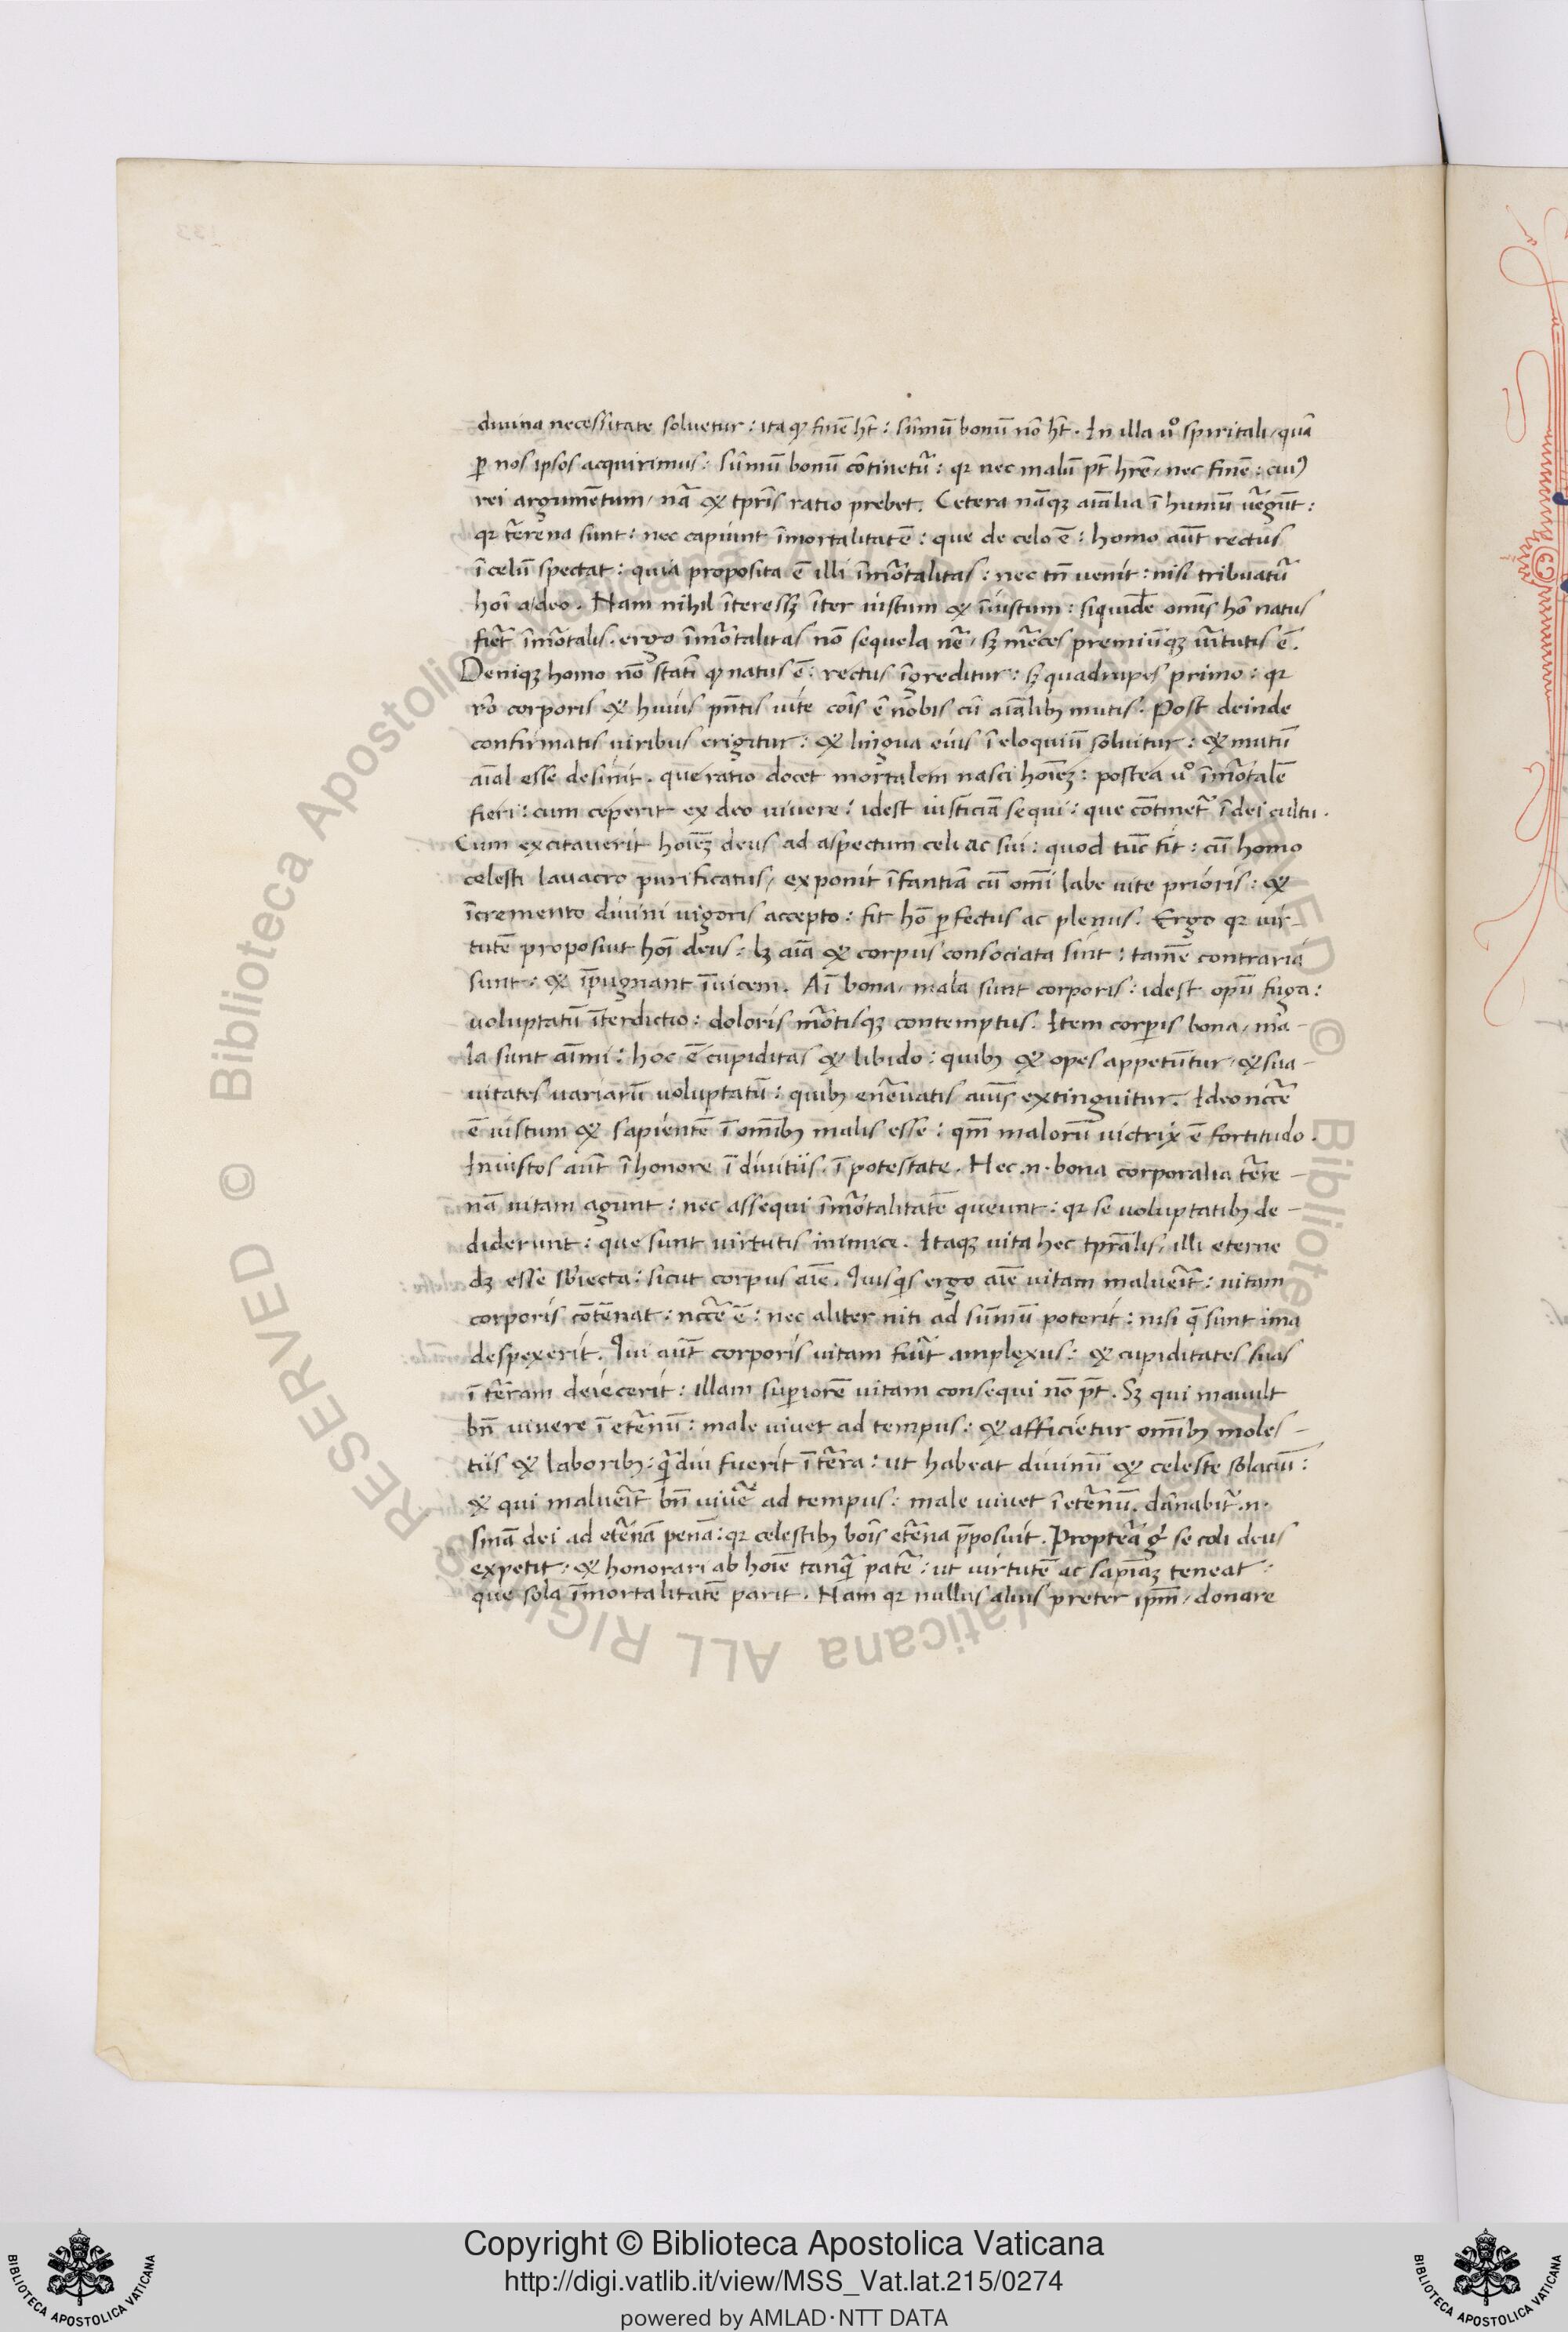 divina necessitate solvetur : ita qͦ finē hr̄ : sūmū bonū nō hr̄ . In illa uͦ spiritali / quā
ꝑ nos ipsos acquirimus : sūmū bonū cōtinetur̄ : qꝛ nec malū pt̄ hr̄e / nec finē : cuiꝰ
rei argumētum / nā & tpr̄is ratio prebet . Cetera nāqꝫ aīalia ī humū ūgūt :
qꝛ tērena sunt : nec capiunt īmortalitatē : que de celo ē : homo aūt rectus
ī celū spectat : quia proposita ē illi īmōrtalitas : nec tn̄ venit : nisi tribuatur̄
hoī a deo . Nam nihil īteressꝫ īter iustum & īiustum : siquidē omīs hō natus
fiēt īmōrtalis . ergo īmōrtalitas nō sequela nr̄e / sꝫ mērces premiūqꝫ uīrtutis ē .
Deniqꝫ homo nō statī qͦ natus ē : rectus īgreditur : sꝫ quadrupes primo : qꝛ
rō corporis & huius pn̄tis uite cōis ē nobis cū aīalibꝫ mutis . Post deinde
confirmatis viribus erigitur : & lingua eius ī eloquiū solvitur : & mutū
aīal esse desinit . que ratio docet mortalem nasci hoīeꝫ : postea uͦ īmōrtalē
fieri : cum ceperit ex deo vivere : idest iusticiā sequi : que cōtinet̄ ī dei cultu .
Cum excitaverit hoīeꝫ deus ad aspectum celi ac sui : quod tūc fit : cū homo
celesti lavacro purificatus / exponit īfantiā cū omī labe uite prioris : &
īcremento divini vigoris accepto : fit hō ꝑfectus ac plenus . Ergo qꝛ vir-
tutē proposuit hoī deus : lꝫ aīa & corpus consociata sint : tamē contraria
sunt : & īpugnant īuicem . Aī bona / mala sunt corporis : idest opū fuga :
voluptatū īterdictio : doloris mōrtisqꝫ contemptus . Item corꝑis bona / ma-
la sunt aīmi : hoc ē cupiditas & libido : quibꝫ & opes appetūtur / & sua-
vitates variarū voluptatū : quibꝫ enērvatis aīus extinguitur . Ideo nccē
ē iustum & sapientē ī omībꝫ malis esse : qm̄ malorū victrix ē fortitudo .
Iniustos aūt ī honore ī divitiis . ī potestate . Hec .n. bona corporalia tēre-
nā vitam agunt : nec assequi īmōrtalitatē queunt : qꝛ se voluptatibꝫ de-
diderunt : que sunt virtutis inimice . Itaqꝫ vita hec tpr̄alis / illi eterne
dꝫ esse sb̄iecta : sicut corpus aīe . Quisqͥs ergo aīe vitam maluēit : vitam
corporis cōtēnat : nccē ē : nec aliter niti ad sūmū poterit : nisi q̄ sunt ima
despexerit . Qui aūt corporis vitam fuīt amplexus : & cupiditates suas
ī tērram deiecerit : illam suꝑiorē vitam consequi nō pt̄ . Sꝫ qui mavult
bn̄ vivere ī etērnū : male vivet ad tempus : & afficietur omībꝫ moles-
tiis & laboribꝫ : qͣdiu fuerit ī tērra : ut habeat divinū & celeste solaciū :
& qui maluēit bn̄ vivēe ad tempus : male vivet ī etērnū . dānabit̄ .n.
sniā dei ad etērnā penā : qꝛ celestibꝫ boīs etērna p̄posuit . Proptēa gͦ se coli deus
expetit : & honorari ab hoīe tanqͣ patrē : ut virtutē ac sapiāꝫ teneat :
que sola īmortalitatē parit . Nam qꝛ nullus alius preter ip̄m / donare
Copyright © Biblioteca Apostolica Vaticana
http://digi.vatlib.it/view/MSS_Vat.lat.215/0274
powered by AMLAD·NTT DATA